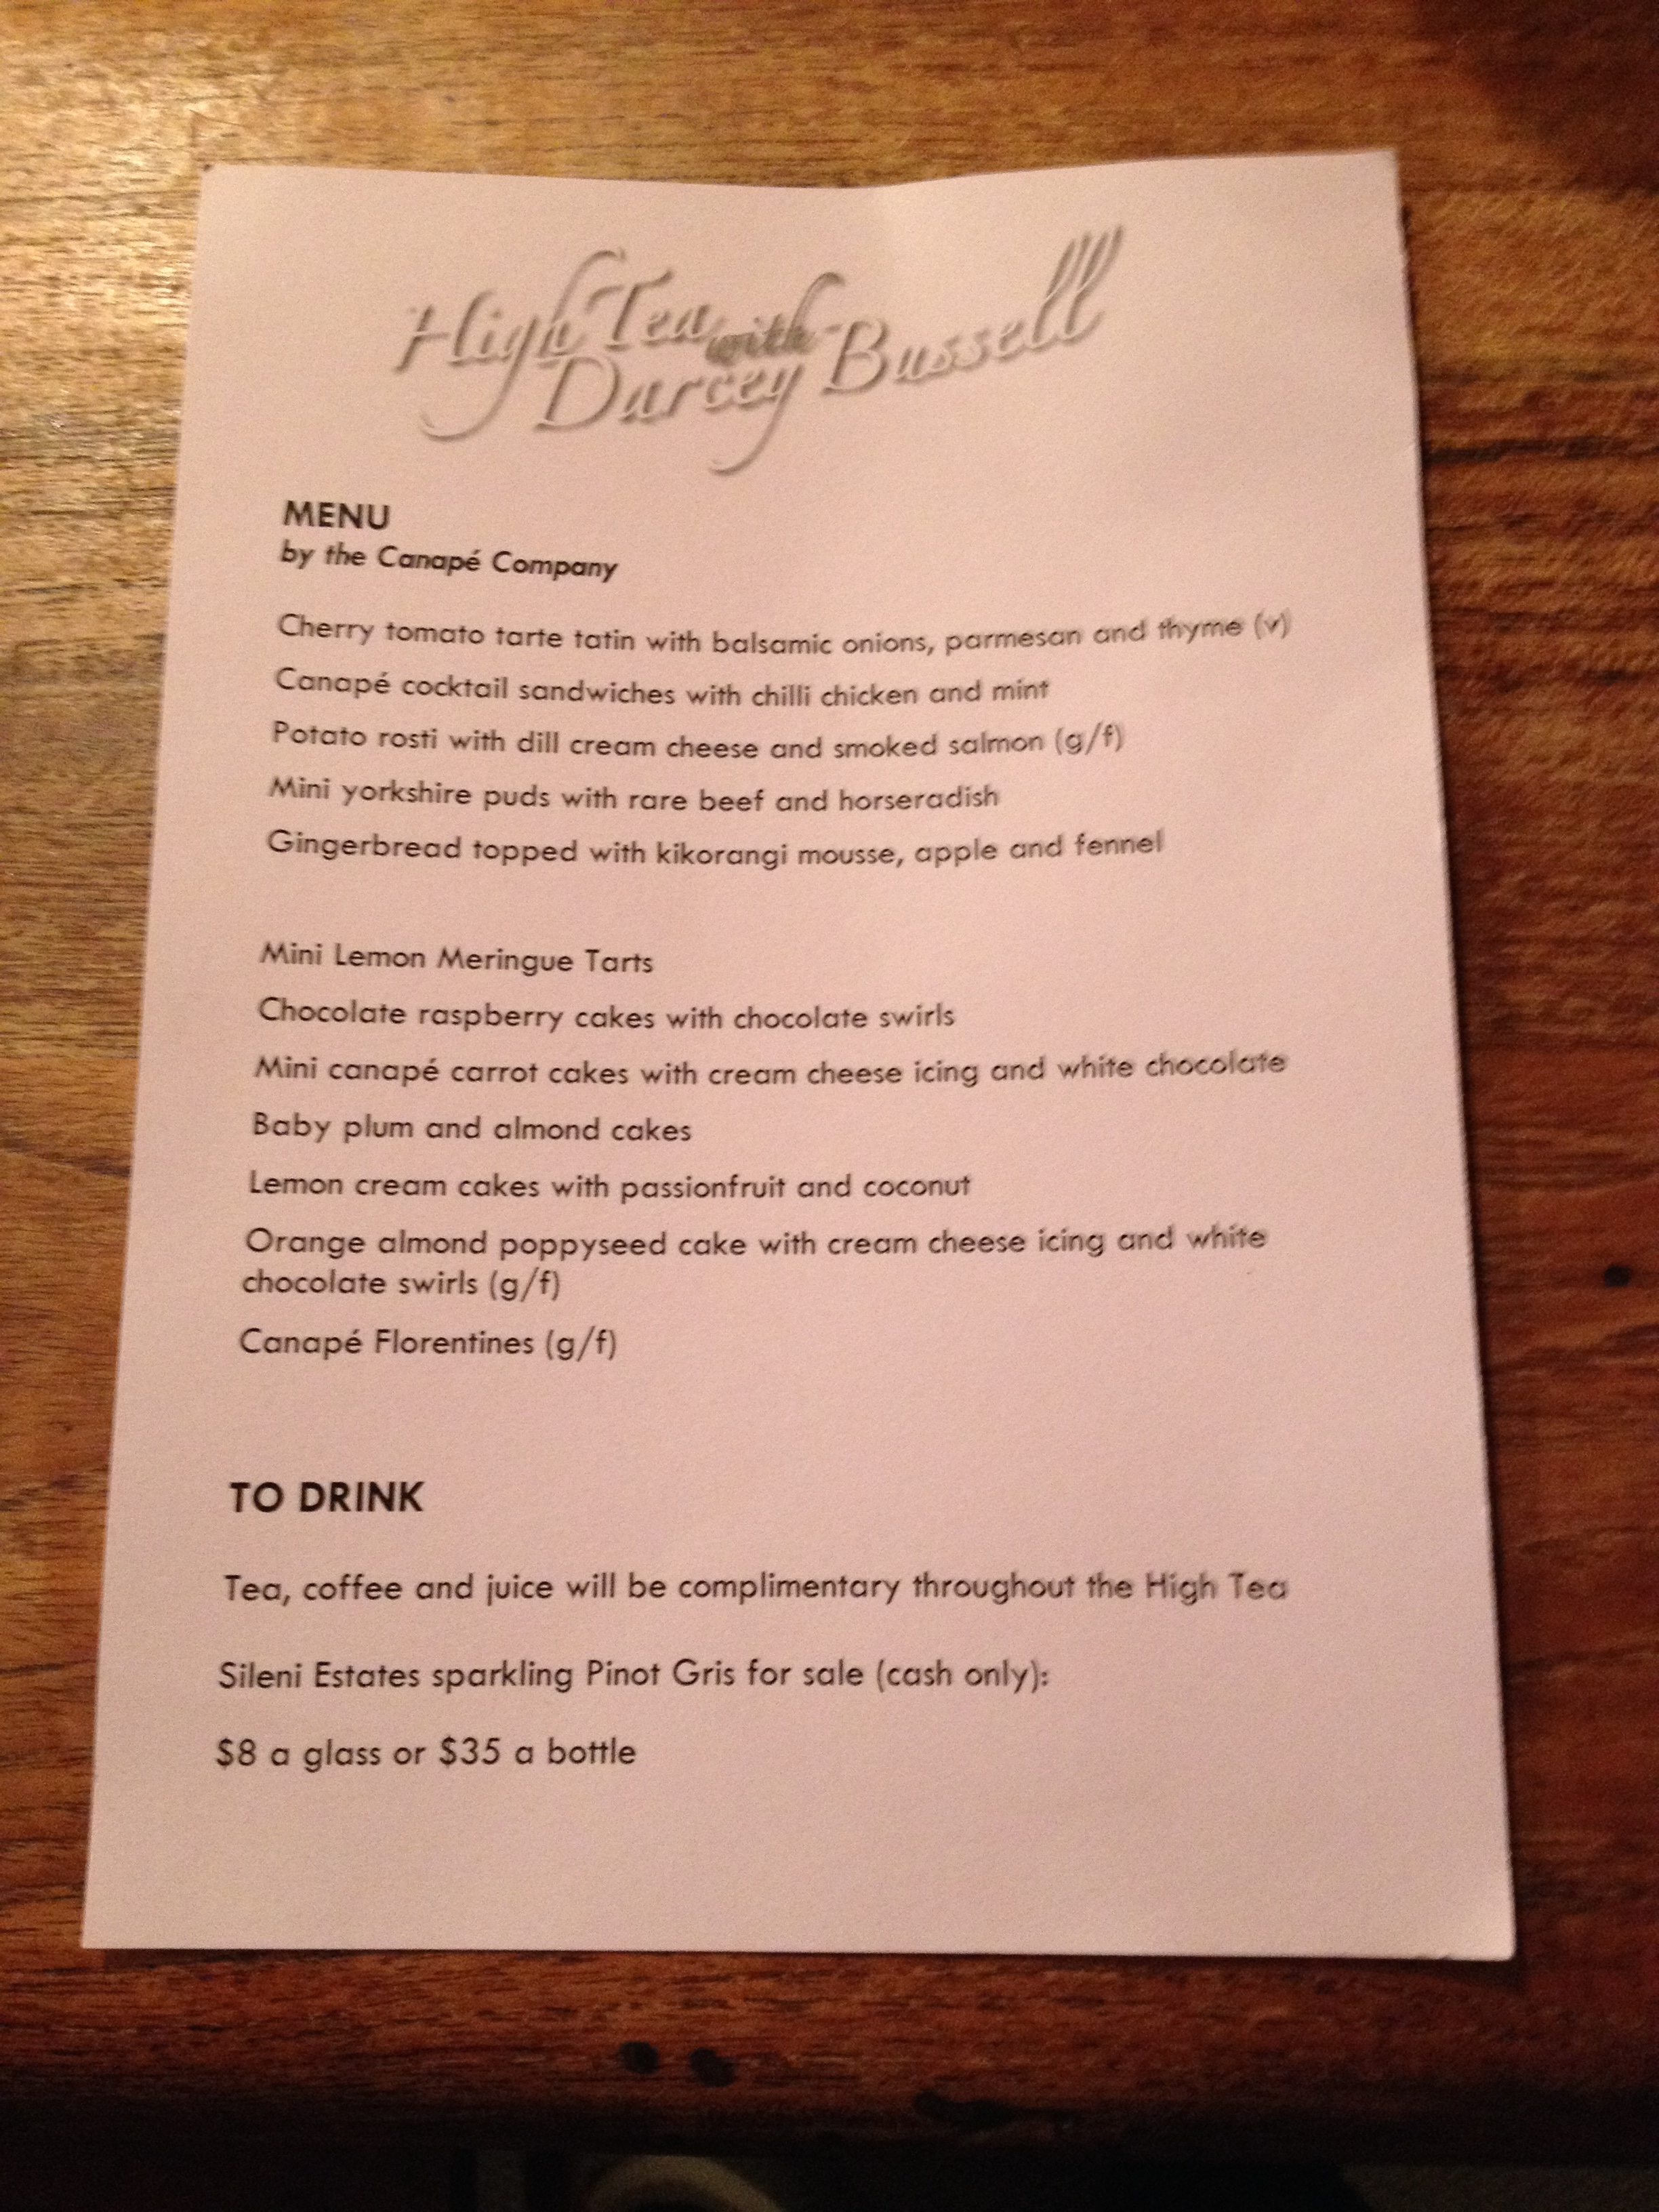 High Tea with
Darcey Bussell
MENU
by the Canapé Company
Cherry tomato tarte tatin with balsamic onions, parmesan and thyme (v)
Canapé cocktail sandwiches with chilli chicken and mint
Potato rosti with dill cream cheese and smoked salmon (g/f)
Mini yorkshire puds with rare beef and horseradish
Gingerbread topped with kikorangi mousse, apple and fennel
Mini Lemon Meringue Tarts
Chocolate raspberry cakes with chocolate swirls
Mini canapé carrot cakes with cream cheese icing and white chocolate
Baby plum and almond cakes
Lemon cream cakes with passionfruit and coconut
Orange almond poppyseed cake with cream cheese icing and white
chocolate swirls (g/f)
Canapé Florentines (g/f)
TO DRINK
Tea, coffee and juice will be complimentary throughout the High Tea
Sileni Estates sparkling Pinot Gris for sale (cash only):
$8 a glass or $35 a bottle